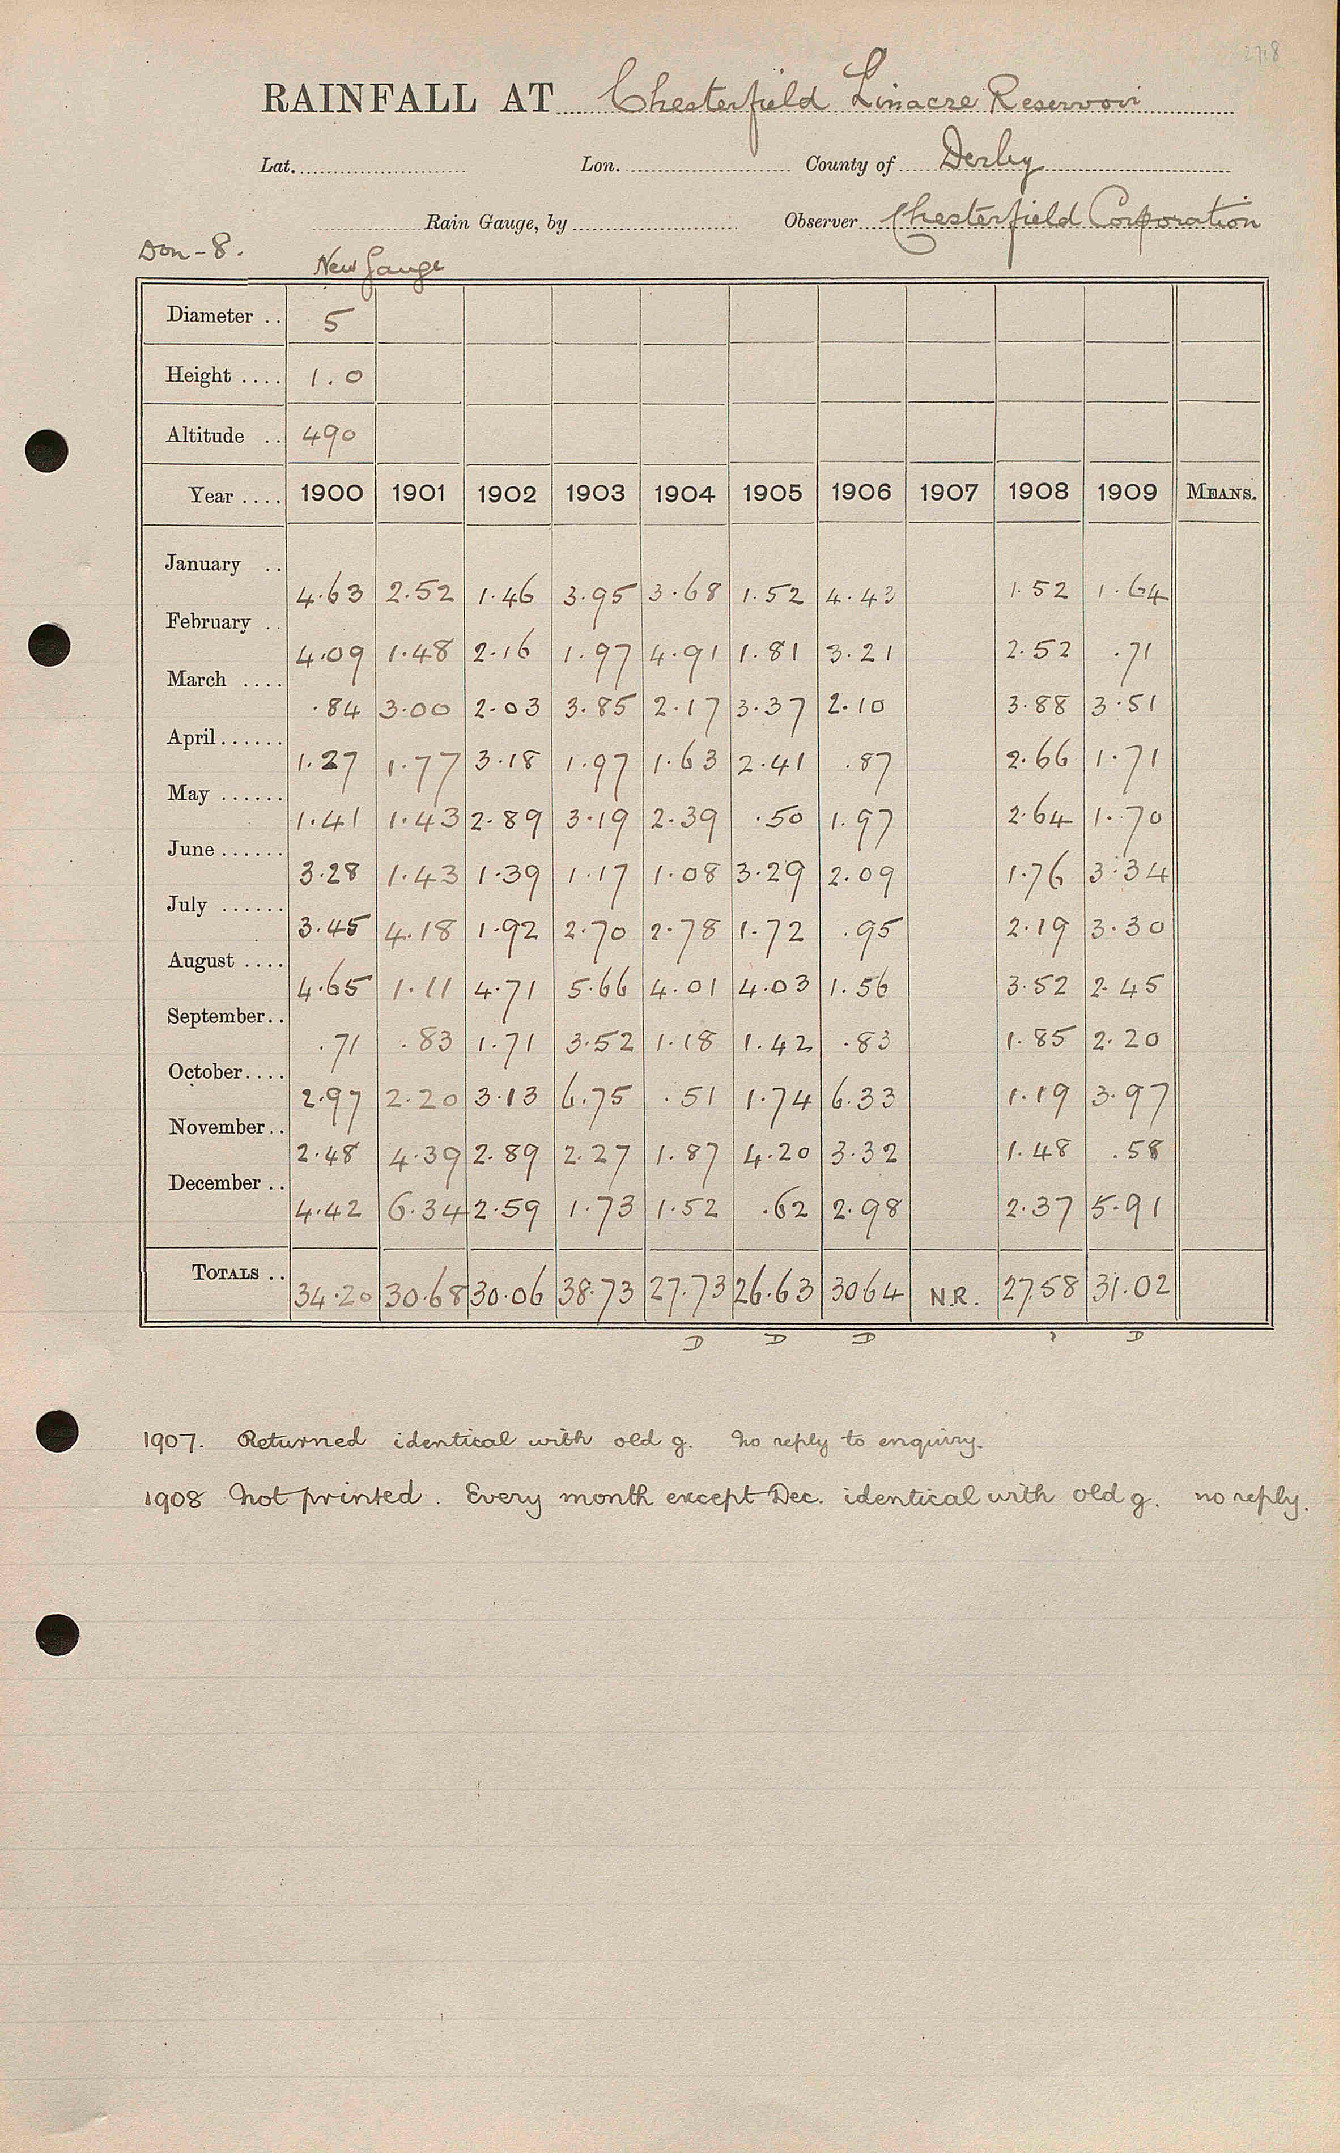 27.8
RAINFALL AT Chesterfield Linacre Reservoir
Lat. Lon. County of Derby
Rain Gauge, by Observer Chesterfield Corporation
Don-8. New Gauge
Diameter .. 5
Height .... 1.0
Altitude .. 490
Year .... 1900 1901 1902 1903 1904 1905 1906 1907 1908 1909 MEANS.
January .. 4.63 2.52 1.46 3.95 3.68 1.52 4.43 1.52 1.64
February .. 4.09 1.48 2.16 1.97 4.91 1.81 3.21 2.52 .71
March .... .84 3.00 2.03 3.85 2.17 3.37 2.10 3.88 3.51
April...... 1.27 1.77 3.18 1.97 1.63 2.41 .87 2.66 1.71
May ...... 1.41 1.43 2.89 3.19 2.39 .50 1.97 2.64 1.70
June ...... 3.28 1.43 1.39 1.17 1.08 3.29 2.09 1.76 3.34
July ...... 3.45 4.18 1.92 2.70 2.78 1.72 .95 2.19 3.30
August .... 4.65 1.11 4.71 5.66 4.01 4.03 1.56 3.52 2.45
September.. .71 .83 1.71 3.52 1.18 1.42 .83 1.85 2.20
October.... 2.97 2.20 3.13 6.75 .51 1.74 6.33 1.19 3.97
November.. 2.48 4.39 2.89 2.27 1.87 4.20 3.32 1.48 .58
December .. 4.42 6.34 2.59 1.73 1.52 .62 2.98 2.37 5.91
TOTALS .. 34.20 30.68 30.06 38.73 27.73 26.63 30.64 N.R. 27.58 31.02
D D D D
1907. Returned identical with old g. No reply to enquiry.
1908 Not printed. Every month except Dec. identical with old g. no reply.